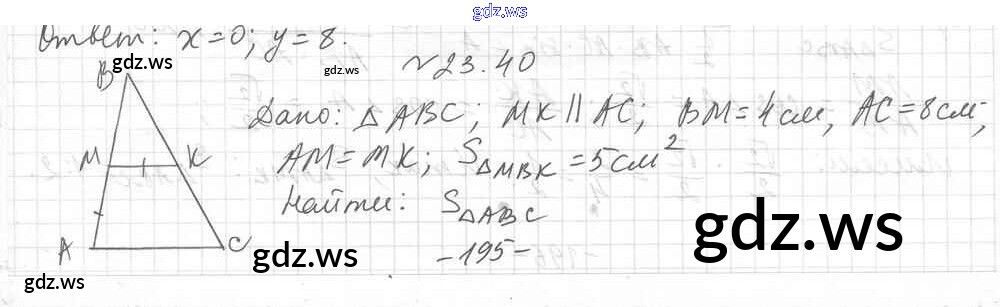 gdz.ws
Ответ: x=0; y=8.
gdz.ws
gdz.ws
B
№23.40
Дано: △ABC; MK||AC; BM=4см, AC=8см;
M K
AM=MK; S△MBK=5см²
Найти: S△ABC
A C
gdz.ws
gdz.ws
-195-
gdz.ws